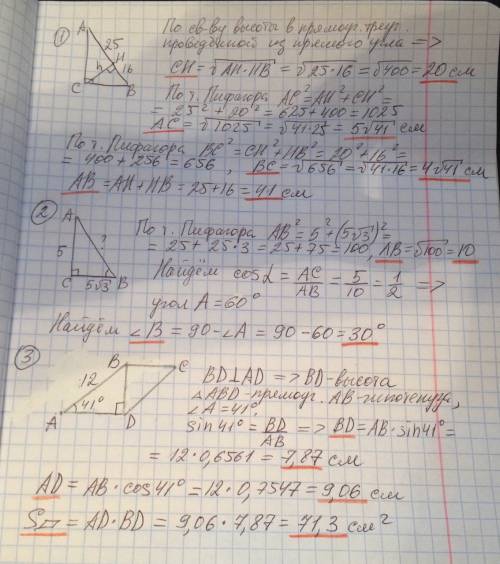 1 По св-ву высоты в прямоуг. треуг.
проведённой из прямого угла =>
A
25
H
h
16
C
B
CH = √AH·HB = √25·16 = √400 = 20 см
По т. Пифагора AC² = AH² + CH² =
= 25² + 20² = 625 + 400 = 1025
AC = √1025 = √41·25 = 5√41 см
По т. Пифагора BC² = CH² + HB² = 20² + 16² =
= 400 + 256 = 656, BC = √656 = √41·16 = 4√41 см
AB = AH + HB = 25 + 16 = 41 см
2
A
?
5
C
5√3
B
По т. Пифагора AB² = 5² + (5√3)² =
= 25 + 25·3 = 25 + 75 = 100, AB = √100 = 10
Найдём cos α = AC/AB = 5/10 = 1/2 =>
угол A = 60°
Найдём ∠B = 90 - ∠A = 90 - 60 = 30°
3
B
C
12
41°
A
D
BD⊥AD => BD - высота
△ABD - прямоуг. AB - гипотенуза,
∠A = 41°,
sin 41° = BD/AB => BD = AB·sin 41° =
= 12·0,6561 = 7,87 см
AD = AB·cos 41° = 12·0,7547 = 9,06 см
S▱ = AD·BD = 9,06·7,87 = 71,3 см²